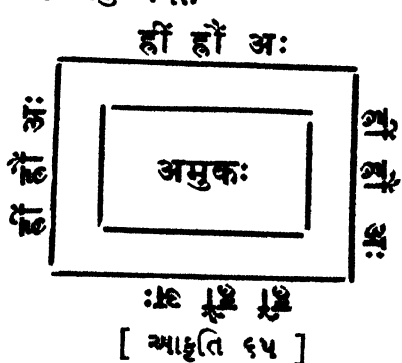 ह्रीं ह्रौं अः
ह्रीं ह्रौं अः
अमुकः
ह्रीं ह्रौं अः
ह्रीं ह्रौं अः
[ આકૃતિ ૬૫ ]